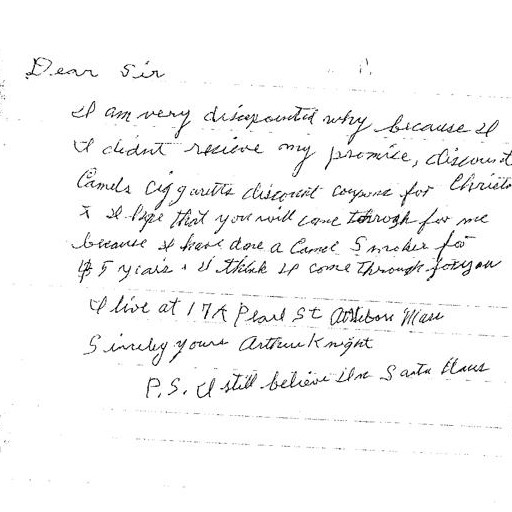 Dear Sir
I am very disapointed why because I
I didnt recieve my promice, discount
Camels ciggaretts discount coupons for Christ
I Hope that you will come through for me
because I have done a Camel Smoker for
45 years. I think I come through for you
I live at 17A Pearl St Attlebora Mass
Sincrley yours Arthur Knight
P.S. I still believe in Santa Claus